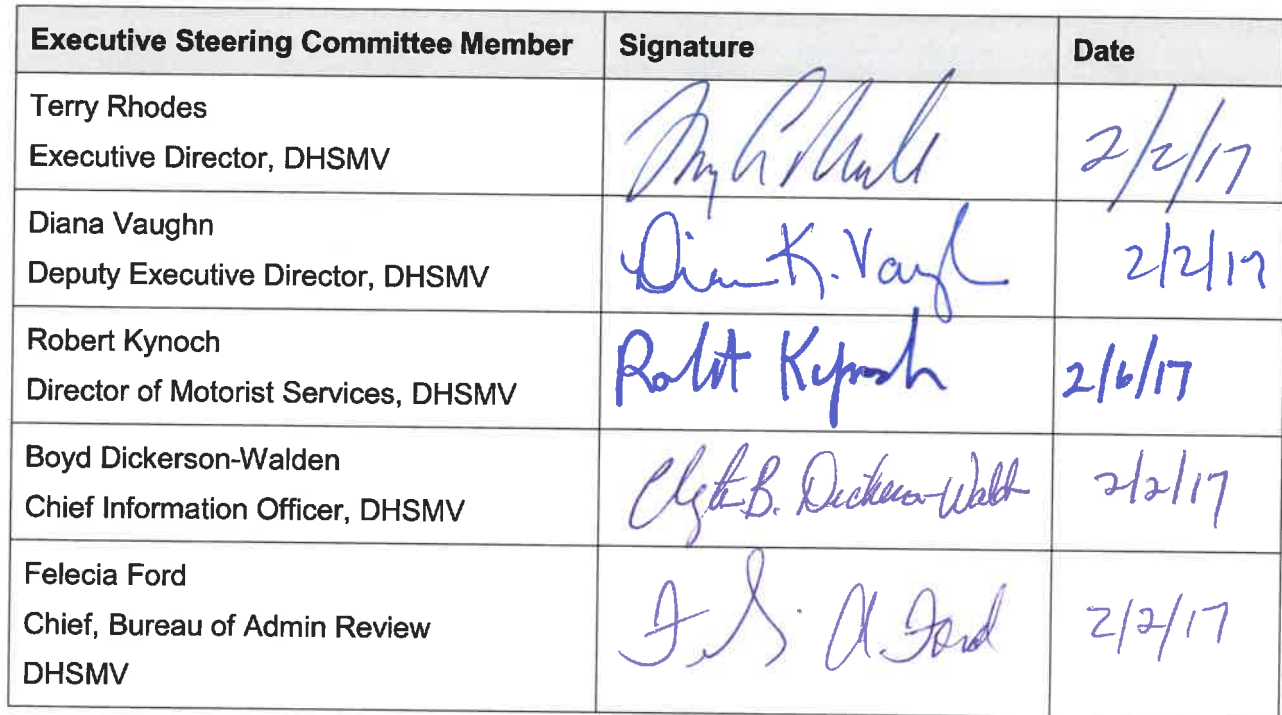 Executive Steering Committee Member Signature Date
Terry Rhodes
Executive Director, DHSMV
2/2/17
Diana Vaughn
Deputy Executive Director, DHSMV
Dian K. Vaugh 2/2/17
Robert Kynoch
Director of Motorist Services, DHSMV
Robert Kynoch 2/6/17
Boyd Dickerson-Walden
Chief Information Officer, DHSMV
B. Dickerson-Wald 2/2/17
Felecia Ford
Chief, Bureau of Admin Review
DHSMV
A Ford 2/2/17